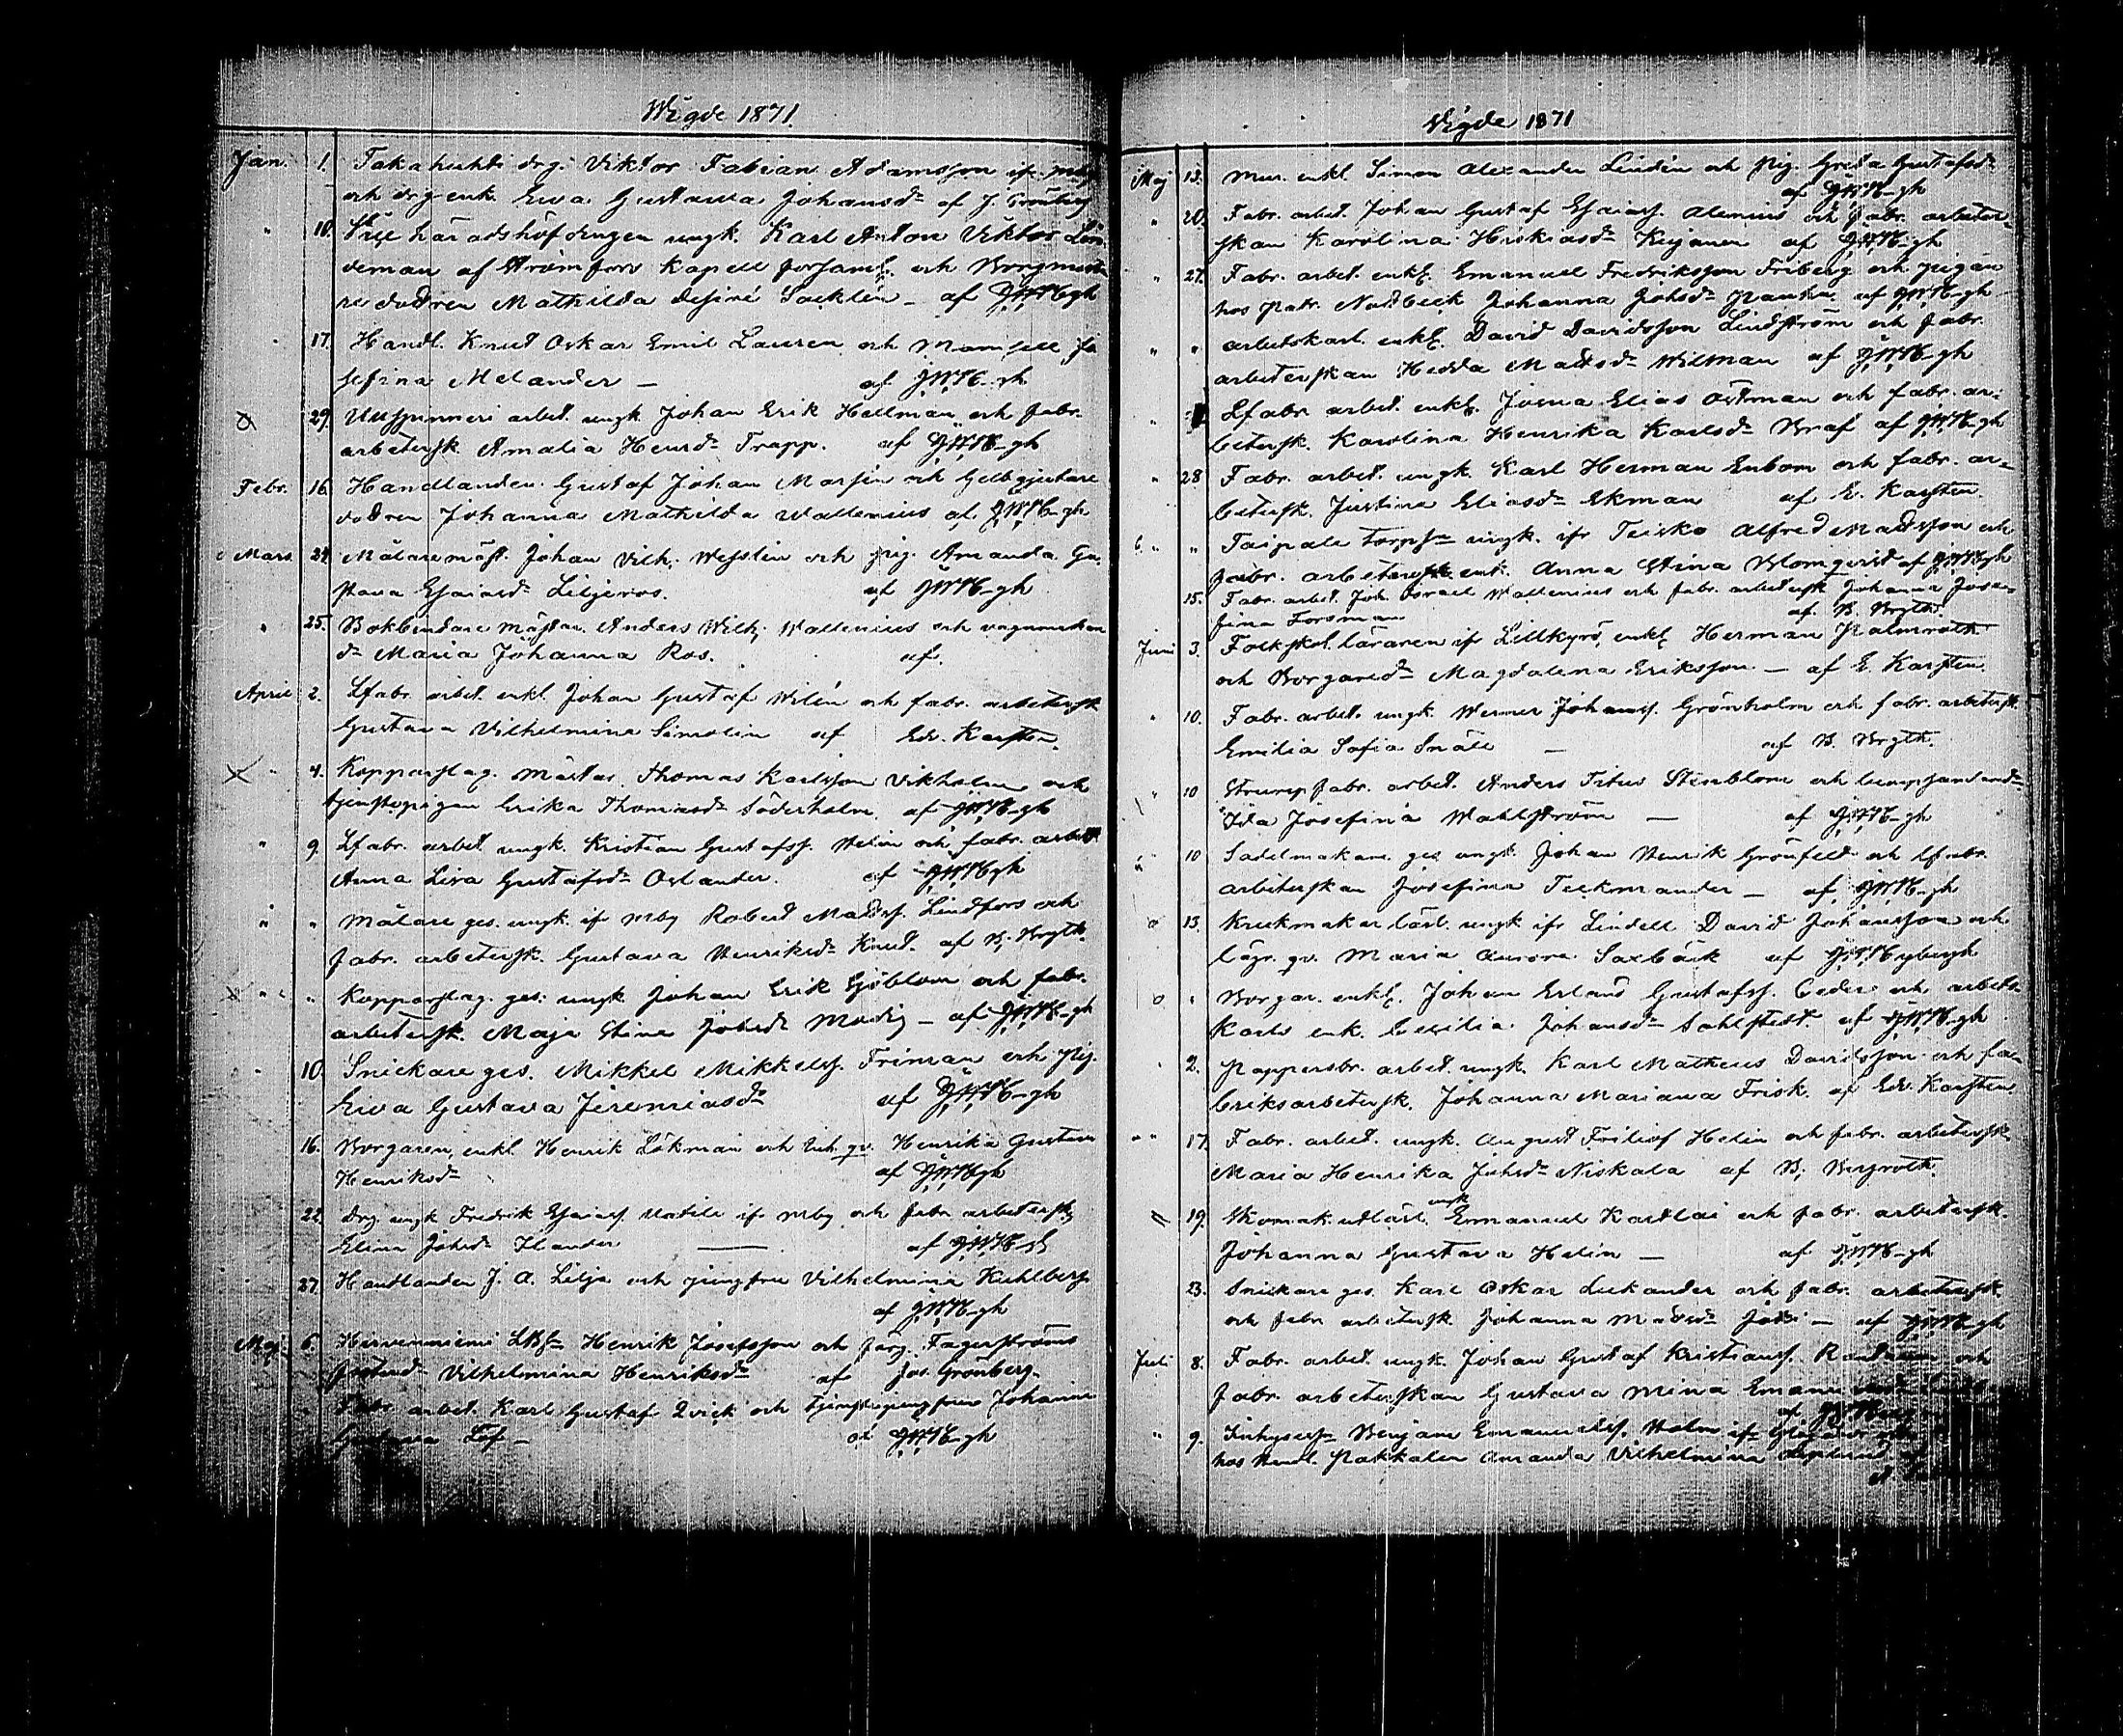 Wigde 1871.
Jan. 1. Takahuhti drg. Viktor Fabian Adamsson ifr. mby
och drg enk. Eva Gustava Johansdr af J. Grönberg
" 10. Vice häradshöfdingen ungk. Karl Anton Viktor Lin-
deman af Strömfors Kapell församl. och Borgmästa-
re dottren Mathilda Desiré Sacklén - af
17. Handl. Knut Oskar Emil Lauren och Mamsell Jo
sefina Melander - af
29. Ullspinneri arbet. ungk Johan Erik Hellman och fabr.
arbetersk Amalia Henrdr Trapp. af
Febr. 16. Handlanden Gustaf Johan Morsin och Gelbgjutare
dottren Johanna Mathilda Wallenius af
Mars 24. Målaremäst. Johan Vilh. Wesslin och pig. Amanda Gu-
stava Esaiasdr Liljeros. af
" 25. Bokbindare mästar. Anders Wilh. Wallenius och vagnmakare
dr Maria Johanna Ros. af.
April 2. Lfabr. arbet. enkl. Johan Gustaf Wilén och fabr. arbetersk
Gustava Vilhelmina Simolin af Edv. Karsten.
" 4. Kopparslag. mästar. Thomas Karlsson Vikholm och
tjenstepigan Erika Thomasdr Söderholm af
" 9. Lfabr. arbet ungk. Kristian Gustafss. Helin och fabr. arbetsk
Anna Lisa Gustafsdr Oslander. af
" " Målare ges. ungk. ifr mby Robert Mattss. Lindfors och
fabr. arbetersk. Gustava Henriksdr Knut. af B. Brgth.
" " Kopparslag. ges. ungk Johan Erik Sjöblom och fabr.
arbetersk. Maja Stina Johsdr Modig - af
10. Snickare ges. Mikkel Mikkelss. Friman och pig.
Eva Gustava Jeremiasdr af
16. Borgaren, enkl. Henrik Lökman och Inh. qv. Henrika Gustava
Henriksdr af
22. Drg. ungk Fredrik Esaiass. ifr mby och fabr. arbetersk
Elina Johsdr Ilander af
27. Handlanden J. A. Lilja och jungfru Vilhelmina Kuhlberg
af
Maj 6. Henrik Josefsson och färg. Fagerströms
Vilhelmina Henriksdr af Jos. Grönberg.
Fabr. arbet. Karl Gustaf Qvick och tjenstejungfrun Johanna
Gustava Löf - af
Vigde 1871
Maj 13. Mur. enkl. Simon Alexander Lindén och Pig. Greta Gustafsdr
af
" 20. Fabr. arbet. Johan Gustaf Esaiass. Alenius och fabr. arbeter-
skan Karolina Hiskiasdr Keijanen af
" 27. Fabr. arbet. enkl. Emanuel Fredriksson Friberg och pigan
hos Patr. Nottbeck Johanna Johsdr af
" " Arbetskarl. enkl. David Davidsson Lindström och fabr.
arbeterskan Hedda Mattsdr Wilman af
" Lfabr. arbet. enkl. Josua Elias Östman och fabr. ar-
betersk. Karolina Henrika Karlsdr Braf af
" 28 Fabr. arbet. ungk. Karl Herman Enbom och fabr. ar-
betersk. Justina Eliasdr Ekman af E. Karsten.
" " Taipale torpsn ungk. ifr Teisko Alfred Mattsson och
fabr. arbetersk. enk. Anna Stina Blomqvist af
15. Fabr. arbet. Joh. Israel Wallenius och fabr. arbetersk Johanna Jose-
fina Forsman af B. Brgth.
Juni 3. Folkskol. läraren ifr Lillkyro, enkl. Herman Palmroth
och Borgaredr Magdalena Eriksson - af E. Karsten
" 10. Fabr. arbet. ungk. Werner Johanss. Grönholm och fabr. arbetersk.
Emilia Sofia Snäll - af B. Brgth.
" 10 Strumpfabr. arbet. Anders Titus Stenblom och
Ida Josefina Wahlström - af
" 10 Sadelmakare ges. ungk. Johan Henrik Grönfeldt och lfabr.
arbeterskan Josefina Teckmander - af
13. Krukmakar lärl. ungk ifr Lindell David Johansson och
lägr. qv. Maria Aurora Saxbäck af
" Borgar. enkl. Johan Erland Gustafss. Ceder och arbets-
karls enk. Cecilia Johansdr Sahlstedt. af
2. Pappersbr. arbet. ungk. Karl Matheus Davidsson och fa-
briksarbetersk. Johanna Mariana Frisk. af Edv. Karsten.
" 17. Fabr. arbet. ungk. August Fritiof Helin och fabr. arbetersk
Maria Henrika Johsdr Niskala af B. Bergroth.
ungk
19. Skomak utlärl. Emanuel Kartlai och fabr. arbetersk.
Johanna Gustava Helin - af
23. Snickare ges. Karl Oskar Lukander och fabr. arbetersk
och fabr. arbetersk Johanna Mattsdr - af
Juli 8. Fabr. arbet. ungk. Johan Gustaf Kristianss. och
fabr. arbeterskan Gustava Mina
af
" 9. Inhysessn Benjam Emanuelss. Holm ifr
hos Handl. Pakkalen Amanda Vilhelmina